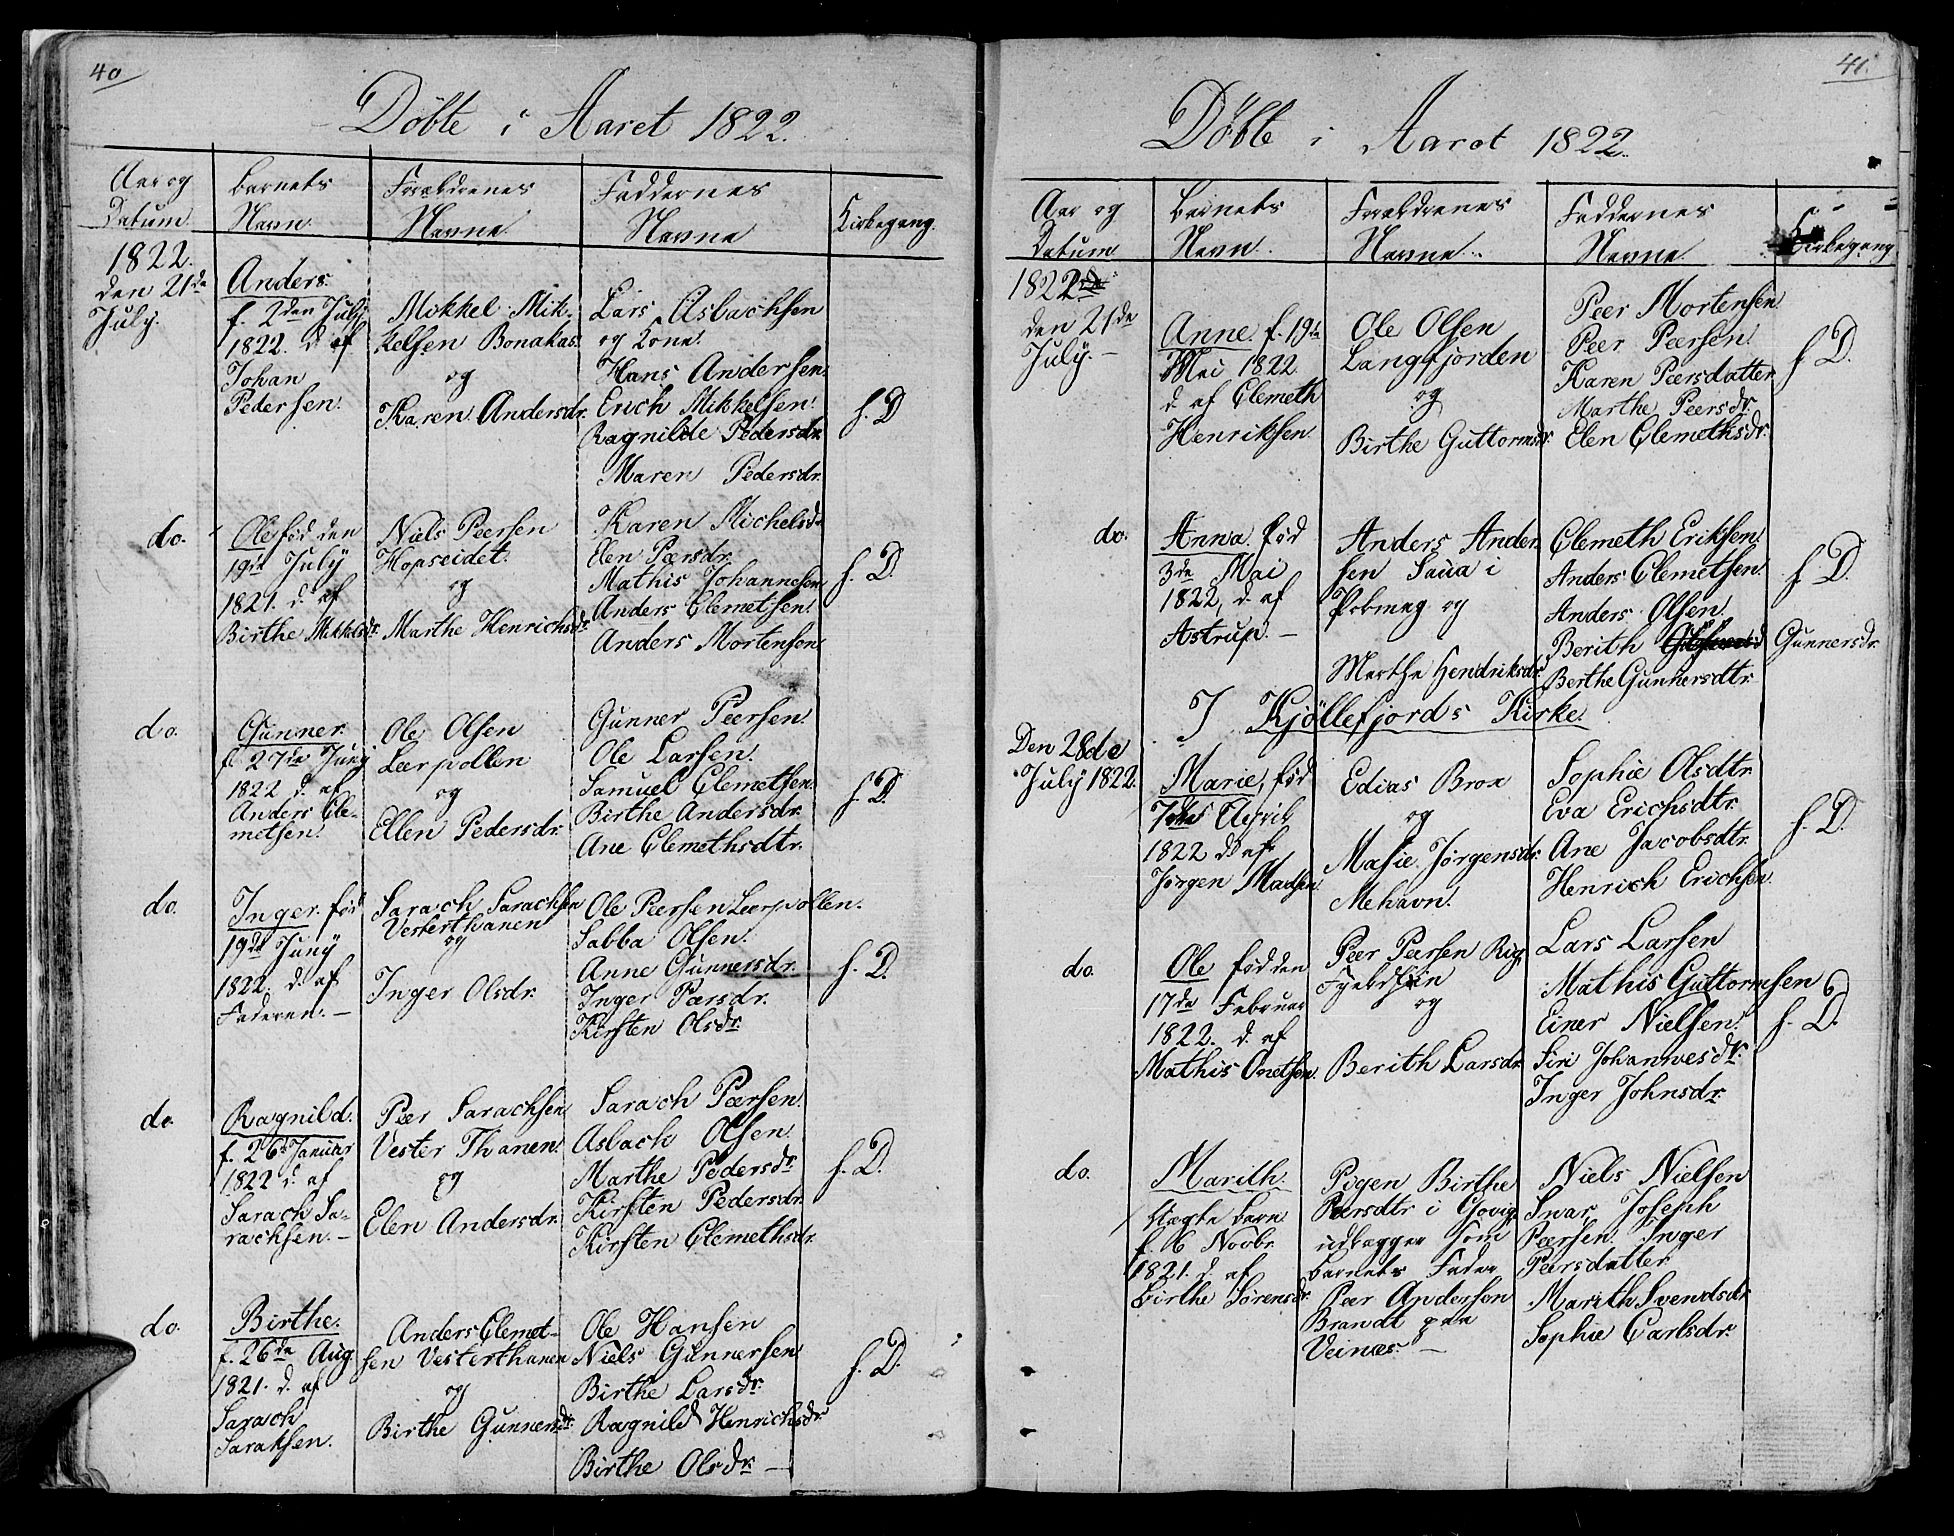 40
Döbte i Aaret 1822.
Aar og Datum
Barnets Navn
Forældrenes Navne
Faddernes Navne
Kirkegang.
1822.
den 21de
July.
Anders.
f. 2den July
1822. d. af
Johan
Pedersen.
Mikkel Mik-
kelsen Bonakas
og
Karen Andersdr.
Lars Asbachsen
og Kone.
Hans Andersen.
Erich Mikkelsen.
Ragnilde Pedersdr.
Maren Pedersdr.
f. D.
do.
Ole fød den
19de July
1821. d. af
Birthe Mikkelsdr.
Niels Peersen
Hopseidet.
og
Marthe Henrichsdr.
Karen Michelsdr.
Elen Pærsdr.
Mathis Johannesen
Anders Clemetsen.
Anders Mortensen
f. D.
do.
Gunner.
f. 27de Juny
1822 d. af
Anders Cle-
metsen.
Ole Olsen
Leerpollen
og
Ellen Pedersdr.
Gunner Peersen.
Ole Larsen.
Samuel Clemetsen.
Birthe Andersdr.
Ane Clemethsdtr.
f. D.
do.
Inger. fød
19de Juny
1822. d. af
Faderen. –
Sarach Sarachsen
Vesterthanen
og
Inger Olsdr.
Ole Peersen Leerpollen.
Sabba Olsen.
Anne Gunnersdr.
Inger Pærsdr.
Kirsten Olsdr.
f. D.
do.
Ragnild.
f. 26de Januar
1822 d. af
Sarach Sa-
rachsen. –
Peer Sarachsen
Vester Thanen.
og
Elen Andersdr.
Sarach Pærsen.
Asbach Olsen.
Marthe Pedersdr.
Kirsten Pedersdr.
Kirsten Clemethsdr.
f. D.
do.
Birthe.
f. 26de Aug.
1821. d. af
Sarach
Saraksen.
Anders Clemet-
sen Vesterthanen
og
Birthe Gunnersdr.
Ole Hansen
Niels Gunnersen
Birthe Larsdr.
Ragnild Henrichsdr.
Birthe Olsdr. –
f. D.
41.
Döbte i Aaret 1822.
Aar og Datum
Barnets Navn.
Forældrenes Navne.
Faddernes Navne
Kirkegang
1822
den 21de
July. –
Anne. f. 19de
Mai 1822
d. af Clemeth
Henriksen
Ole Olsen
Langfjorden
og
Birthe Guttormsdr.
Peer Mortensen
Peer Peersen.
Karen Peersdatter
Marthe Peersdr.
Elen Clemethsdr.
f D.
do.
Anna. fød
3de Mai
1822, d. af
Astrup. –
Anders Ander-
sen Saua i
Pokmag og
Marthe Hendriksdr.
Clemeth Eriksen.
Anders Clemetsen.
Anders Olsen.
Berith Gunnersdr.
Berthe Gunnersdtr.
f D.
I Kjöllefjords Kirke.
Den 28de
July 1822.
Marie, fød
7de April
1822 d. af
Jörgen Madsen
Edias Brox
og
Masie Jörgensdr.
Mehavn.
Sophie Olsdtr.
Eva Erichsdtr.
Ane Jacobsdtr.
Henrich Erichsen.
f. D.
do.
Ole fød den
17de Februar
1822. d. af
Mathis Onetsen.
Peer Peersen Rig
og
Berith Larsdr.
Lars Larsen
Mathis Guttormsen
Einer Nielsen.
Siri Johannesdr.
Inger Johnsdr.
f. D.
do.
Marith.
Uægte Barn
f. 6 Novbr.
1821. d. af
Birthe Sørensdr.
Pigen Birthe
Peersdtr i Govig
udlægger som
Barnets Fader
Peer Andersen
Brandt paa
Veines. –
Niels Nielsen
Ivar Joseph
Peersen. Inger
Peersdatter
Marith Svendsdr.
Sophie Carlsdr.